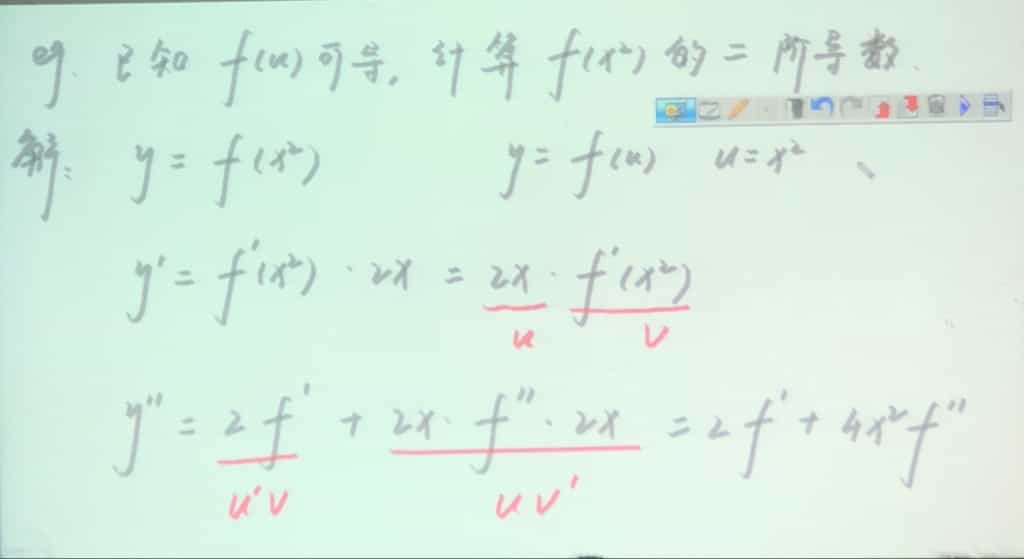 eg. 已知 f(u) 可导, 计算 f(x²) 的二阶导数.
解: y = f(x²) y = f(u) u = x²
y' = f'(x²) · 2x = 2x · f'(x²)
u v
y'' = 2f' + 2x · f'' · 2x = 2f' + 4x²f''
u'v uv'